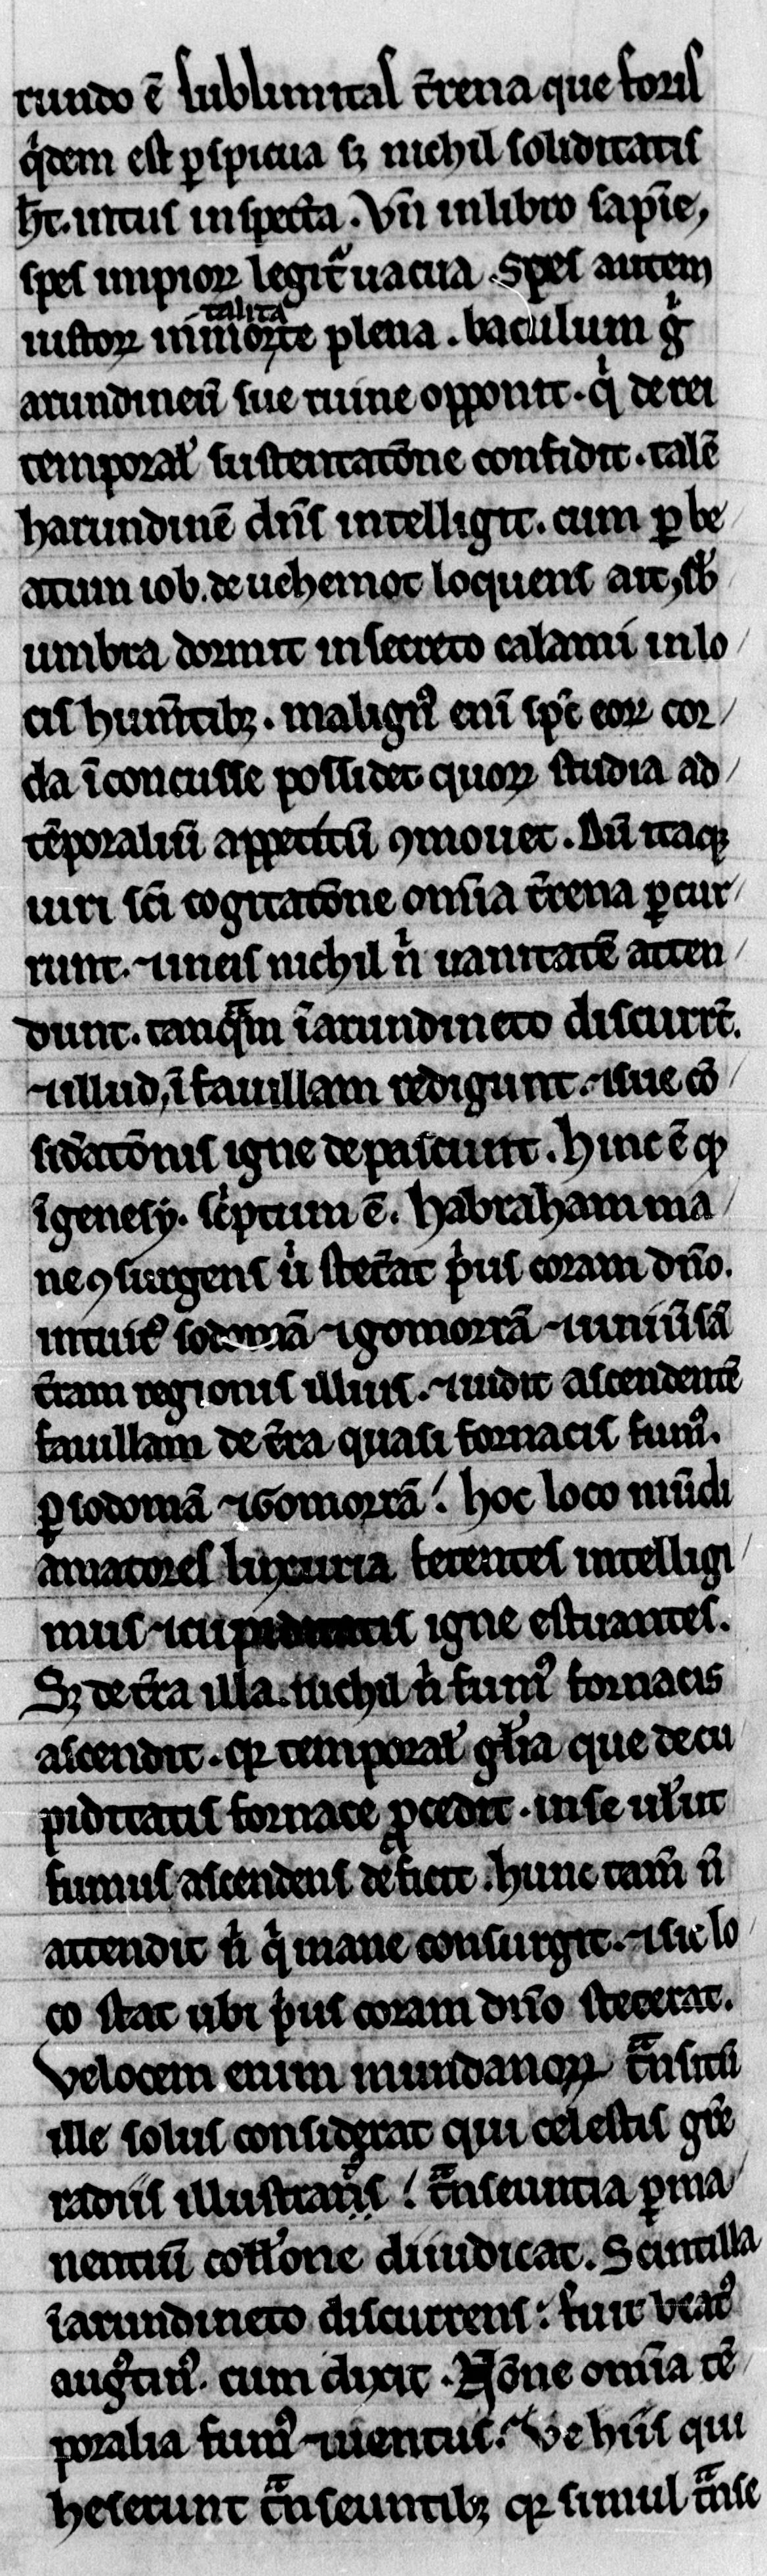 rundo ē sublimitas t̄rena que foris
q̇dem est ꝑspicua sꝫ nichil soliditatis
h̄t. intus inspecta. Vn̄ in libro sapīe,
spes impioꝝ legit᷑ uacua. Spes autem
iustoꝝ inmortalitate plena. baculum gͥ
arundineū sue ruine opponit. qͥ de rei
temporal᷒ sustentatōne confidit. talē
harundinē dn̄s intelligit. cum ꝑ be/
atum iob. de uehemot loquens ait, sb̄
umbra dormit in secreto calami in lo/
cis humētibꝫ. malignꝰ eni᷒ sp̄c eoꝝ cor/
da īconcusse possidet quoꝝ studia ad/
tēporaliū appetitū ꝯmouet. Dū itaqꝫ
uiri sc̄i cogitatōne om̄ia t̄rena ꝑcur/
runt. ⁊ in eis nichil nͥ uanitatē atten/
dunt. tanqᵃm ī arundineto discurrē.
⁊ illud, ī fauillam redigunt. ⁊ sue cō/
sid̄atōnis igne depascunt. hinc ē ꝙ
ī genesy. scͥptum ē. habraham ma/
ne ꝯsurgens uͥ stet̄at pͥus coram dn̄o.
intuit᷑ sodomā ⁊ gomorrā ⁊ uniūsā
t̄ram regionis illius. ⁊ uidit ascendentē
fauillam de t̄ra quasi fornacis fumꝰ.
ꝑ sodomā ⁊ Gomorrā! hoc loco mūdi
amatores luxuria fetentes intelligi/
mus ⁊ cupiditatis igne estuantes.
Sꝫ de t̄ra illa. nichil nͥ fumꝰ fornacis
ascendit. qꝛ temporal᷒ gl̄ia que de cu
piditatis fornace ꝓcedit. in se uel᷒ut
fumus ascendens deficit. hunc tam̄ n̄
attendit nͥ qͥ mane consurgit. ⁊ sic lo/
co stat ubi pͥus coram dn̄o steterat.
Velocem enim mundanoꝝ tᵃnsitū
ille solus considerat qui celestis gr̄e
radiis illustratus! tᵃnseuntia ꝑma/
nentiū coll᷒one diiudicat. Scintilla
ī arundineto discurrens: fuit beatꝰ
augᷤtinꝰ. cum dixit. Nōne om̄ia tē/
poralia fumꝰ ⁊ uentus. Ve hiis qui
heserunt tᵃnseuntibꝫ qꝛ simul tᵃnse